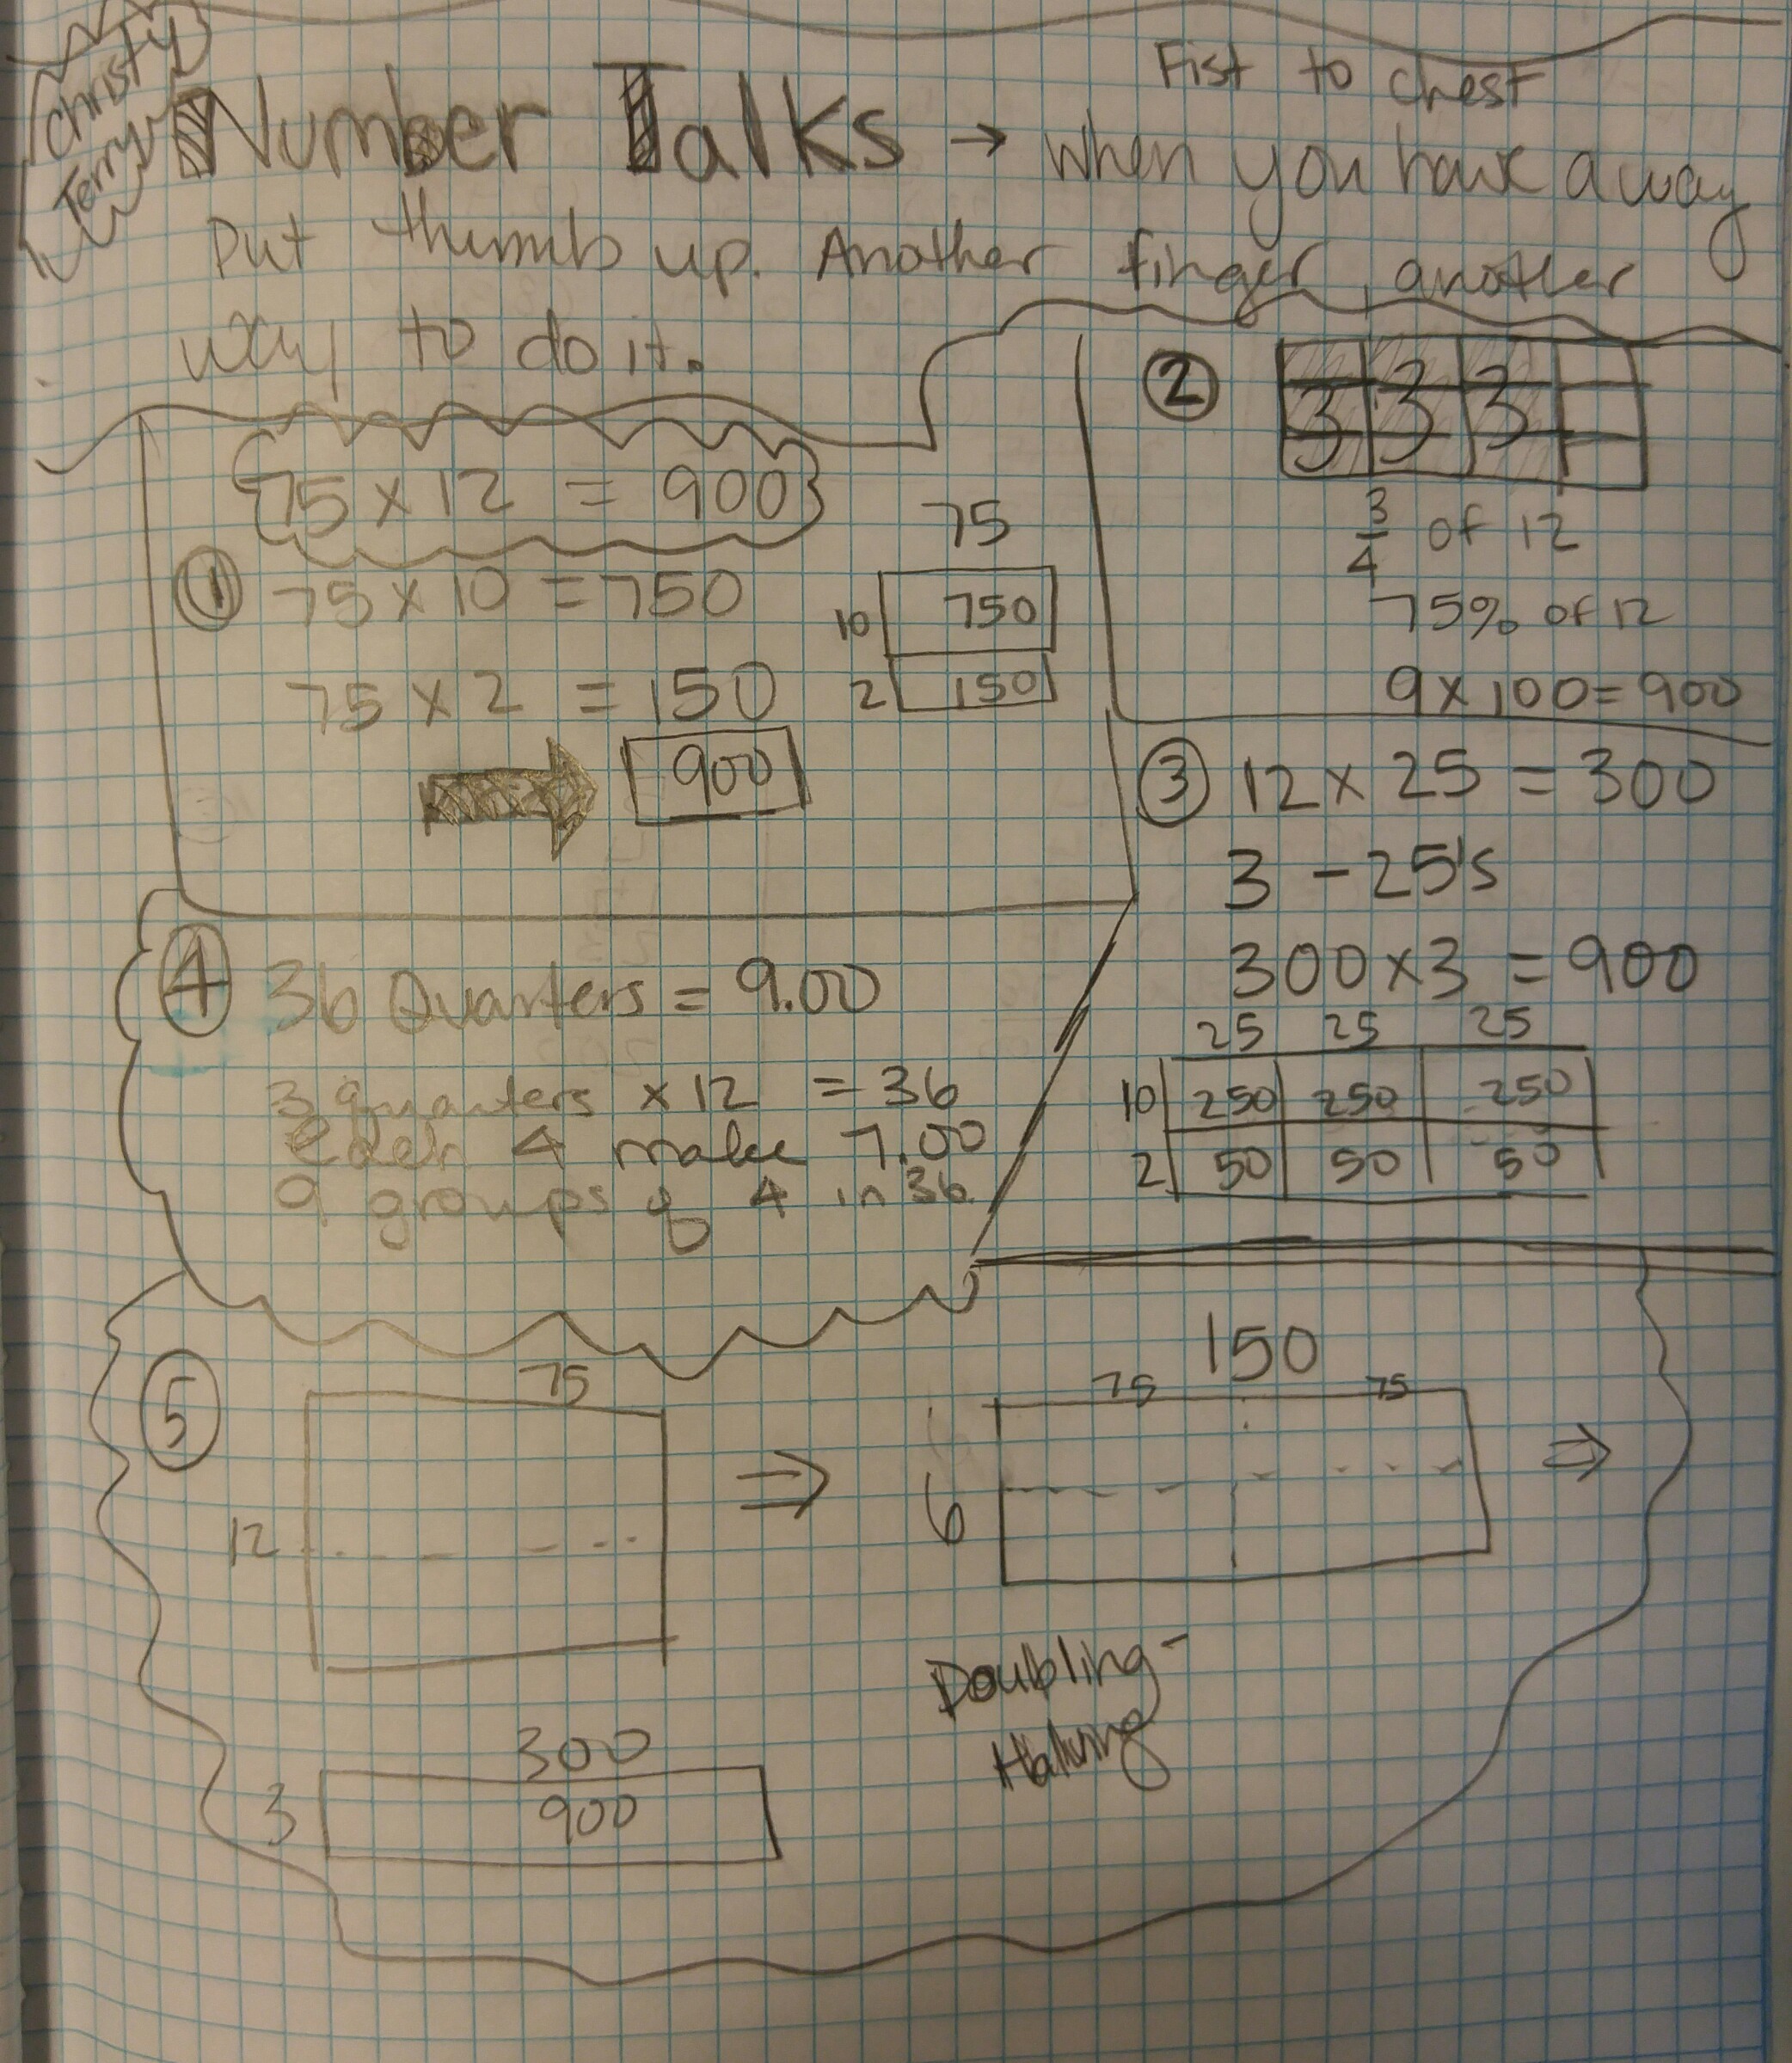 Christy
Terry
Number Talks → Fist to chest
when you have a way
Put thumb up. Another finger, another
way to do it.
75 x 12 = 900
① 75 x 10 = 750
75 x 2 = 150
900
75
10 750
2 150
② 3 3 3
3/4 of 12
75% of 12
9 x 100 = 900
③ 12 x 25 = 300
3 - 25's
300 x 3 = 900
25 25 25
10 250 250 250
2 50 50 50
④ 36 Quarters = 9.00
3 quarters x 12 = 36
Each 4 make 1.00
9 groups of 4 in 36
⑤
75
12
⇒
150
75 75
6
⇒
Doubling-
Halving
300
3 900